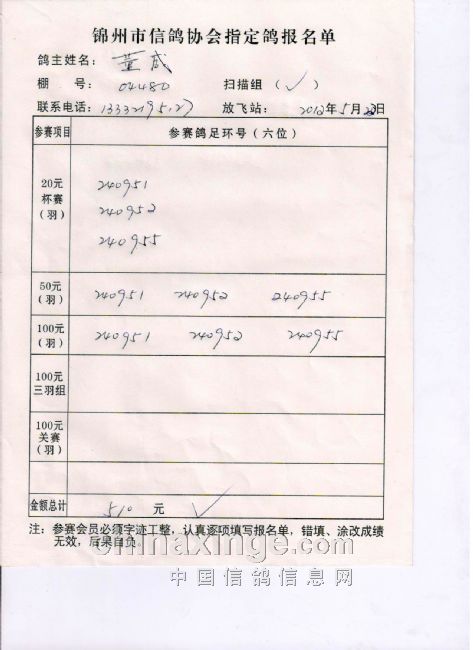 锦州市信鸽协会指定鸽报名单
鸽主姓名：董威
棚 号：04480 扫描组（✓）
联系电话： 放飞站：2012年5月日
参赛项目 参赛鸽足环号（六位）
20元
杯赛
（羽）
240951
240952
240955
50元
（羽）
240951 240952 240955
100元
（羽）
240951 240952 240955
100元
三羽组
100元
关赛
（羽）
金额总计 510 元 ✓
注：参赛会员必须字迹工整，认真逐项填写报名单，错填、涂改成绩
无效，后果自负。
chinaxinge.com
中国信鸽信息网